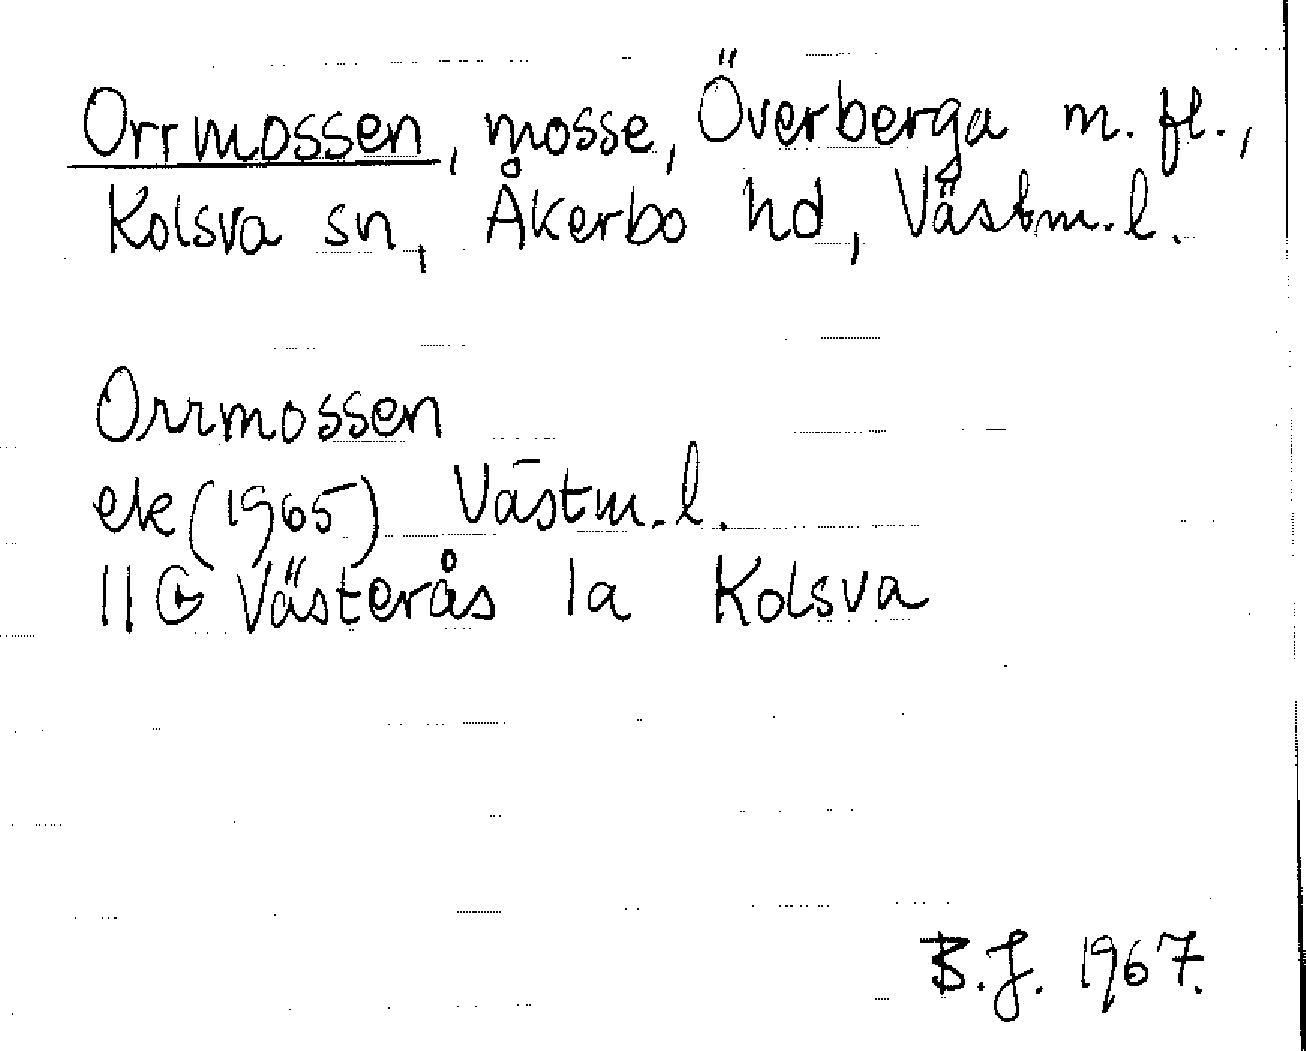 Orrmossen, mosse, Överberga m. fl.,
Kolsva sn, Åkerbo hd, Västm. l.
Orrmossen
ek (1965) Västm. l.
11 G Västerås 1a Kolsva
B.J. 1967.